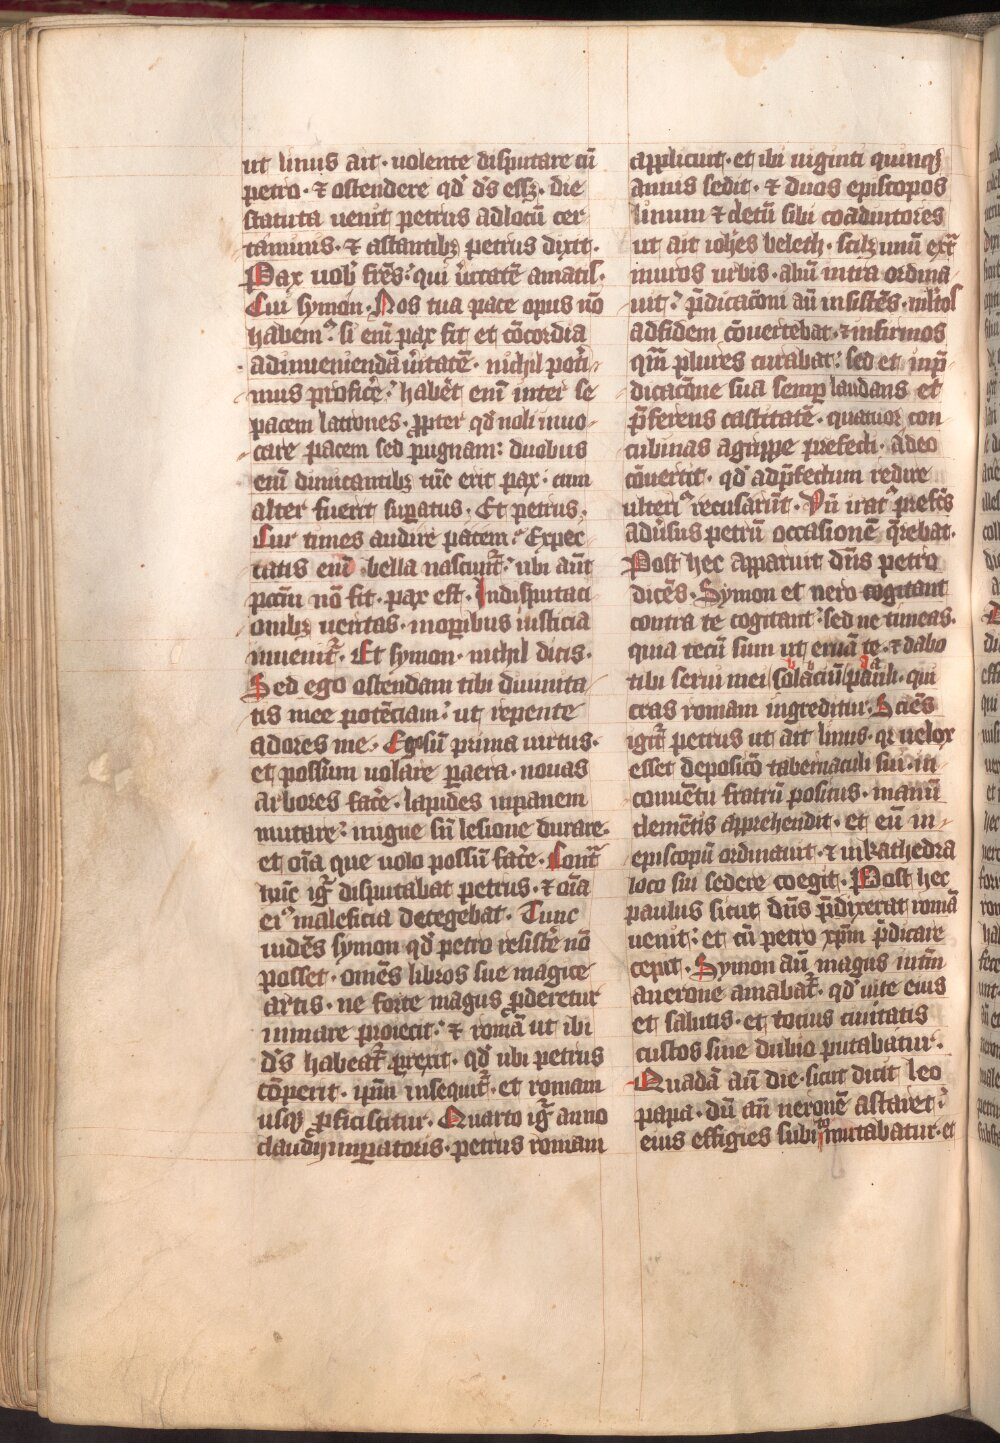 ut linus ait · uolente disputare cū
petro · ⁊ ostendere qd' d's essꝫ · die
statuta uenit petrus ad locū cer
taminis · ⁊ astantibꝫ petrus dixit ·
Pax uob' fr̄es : qui u̾itatē amatis ·
Cui symon · Nos tua pace opus nō
habem᷒ : si eni pax fit et cōcordia
ad inueniendā u̾itatē · nichil pot̾i
mus profic̾e : habēt eni inter se
pacem latrones · ꝓpter qd' noli inuo
care pacem sed pugnam : duobus
eni dimicantibꝫ tūc erit pax · cum
alter fuerit suꝑatus · Et petrus ·
Cur times audire pacem : Ex pec
catis eni bella nascunt̾ : ubi aūt
pccm̄ nō fit · pax est · In disputaci
onibꝫ ueritas · in oꝑibus iusticia
inuenit̾ · Et symon · nichil dicis ·
Sed ego ostendam tibi diuinita
tis mee potēciam : ut repente
adores me · Ego sū prima uirtus ·
et possum uolare ꝑ aera · nouas
arbores fac̾e · lapides in panem
mutare : in igne sn̄ lesione durare ·
et oīa que uolo possū fac̾e · Cont̾
hūc ig̾ disputabat petrus · ⁊ oīa
ei᷒ maleficia detegebat · Tunc
uidēs symon qd' petro resist̾e nō
posset · omēs libros sue magice
artis · ne forte magus ꝓderetur
in mare proiecit : ⁊ romā ut ibi
d's habeat̾ ꝑrexit · qd' ubi petrus
cōperit · ipm̄ insequit̾ · et romam
usqꝫ ꝓficiscitur · Quarto ig̾ anno
claudij imꝑatoris · petrus romam
applicuit · et ibi uiginti quinqꝫ
annis sedit · ⁊ duos episcopos
linum ⁊ cletū sibi coadiutores
ut ait ioh̄es beleth · scilꝫ unū ext̾
muros urbis · aliū intra ordina
uit : p̄dicacōni aū insistēs · m̄ltos
ad fidem cōuertebat · ⁊ infirmos
qm̄ plures curabat : sed et in p̄
dicacōne sua semꝑ laudans et
p̄ferens castitatē · quatuor con
cubinas agrippe prefecti · adeo
cōuertit · qd' ad p̄fectum redire
ulteri᷒ recusarūt · Vn̄ irat᷒ prefcs
adu̾sus petrū occasionē q̄rebat ·
Post hec apparuit dn̄s petro
dicēs · Symon et nero cogitant
contra te cogitant : sed ne timeas ·
quia tecū sum ut eruā te · ⁊ dabo
tibi serui mei solaciū pauli · qui
cras romam ingreditur · Sciēs
igit̾ petrus ut ait linus · qr uelox
esset deposicō tabernaculi sui · in
conuētu fratrū positus · manū
clemētis apprehendit · et eū in
episcopū ordinauit · ⁊ in kathedra
loco sui sedere coegit · Post hec
paulus sicut dn̄s p̄dixerat romā
uenit : et cū petro xp̄m p̄dicare
cepit · Symon aū magus in tm̄
a nerone amabat̾ · qd' uite eius
et salutis · et tocius ciuitatis
custos sine dubio putabatur ·
Quadā aū die · sicut dicit leo
papa · dū an̄ neronē astaret :
eius effigies subito mutabatur · et